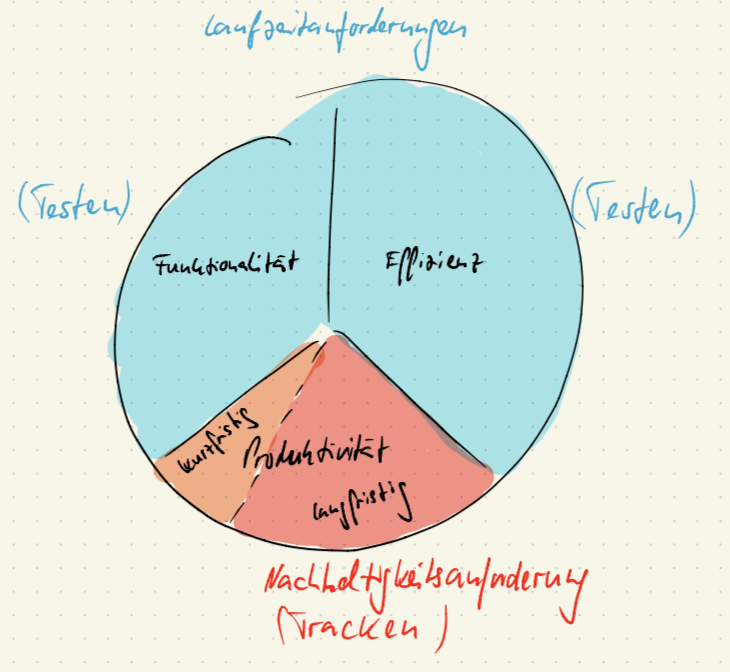 Laufzeitanforderungen
(Testen)
(Testen)
Funktionalität
Effizienz
kurzfristig
Produktivität
langfristig
Nachhaltigkeitsanforderung
(Tracken)